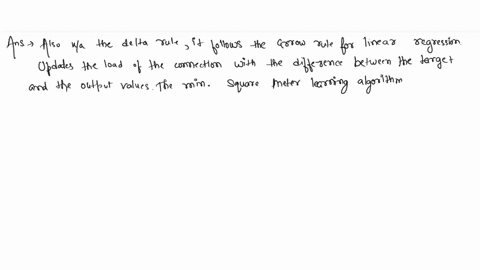 Ans → Also k/a the delta rule, it follows the grrow rule for linear regression
Updates the load of the connection with the difference between the target
and the output values. The min. Square meter learning algorithm